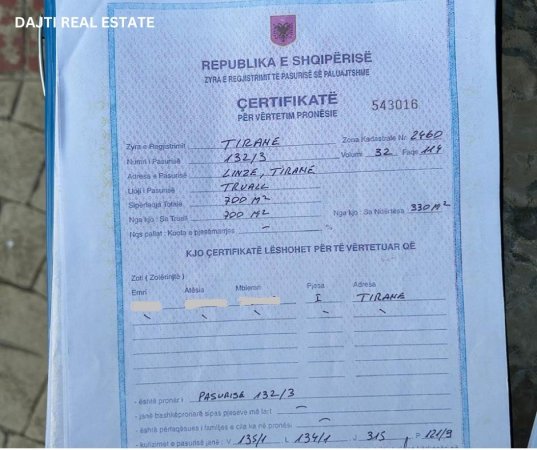 DAJTI REAL ESTATE
REPUBLIKA E SHQIPËRISË
ZYRA E REGJISTRIMIT TE PASURISË SË PALUAJTSHME
ÇERTIFIKATË
PËR VËRTETIM PRONËSIE
543016
Zyra e Regjistrimit TIRANE Zona Kadastrale Nr. 2460
Numri i Pasurisë 132/3 Volumi 32 Faqe 114
Adresa e Pasurisë LINZE, TIRANE
Lloji i Pasurisë TRUALL
Sipërfaqja Totale 700 M²
Nga kjo : Sa Truall 700 M² Nga kjo : Sa Ndërtesa 330 M²
Nqs pallat : Kuota e pjesëmarrjes - %
KJO ÇERTIFIKATË LËSHOHET PËR TË VËRTETUAR QË
Zoti ( Zotërinjtë )
Emri Atësia Mbiemri Pjesa Adresa
I TIRANE
- është pronar i PASURISË 132/3
- janë bashkëpronarë sipas pjesëve më lart -
- është përfaqësues i familjes e cila ka në pronësi -
- kufizimet e pasurisë janë : V 135/1 L 134/1 J 315 P 121/9